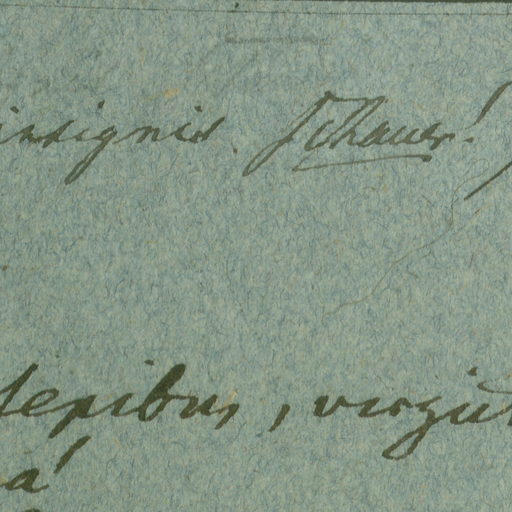 insignis. Schauer!
sepibus, virgul
a!